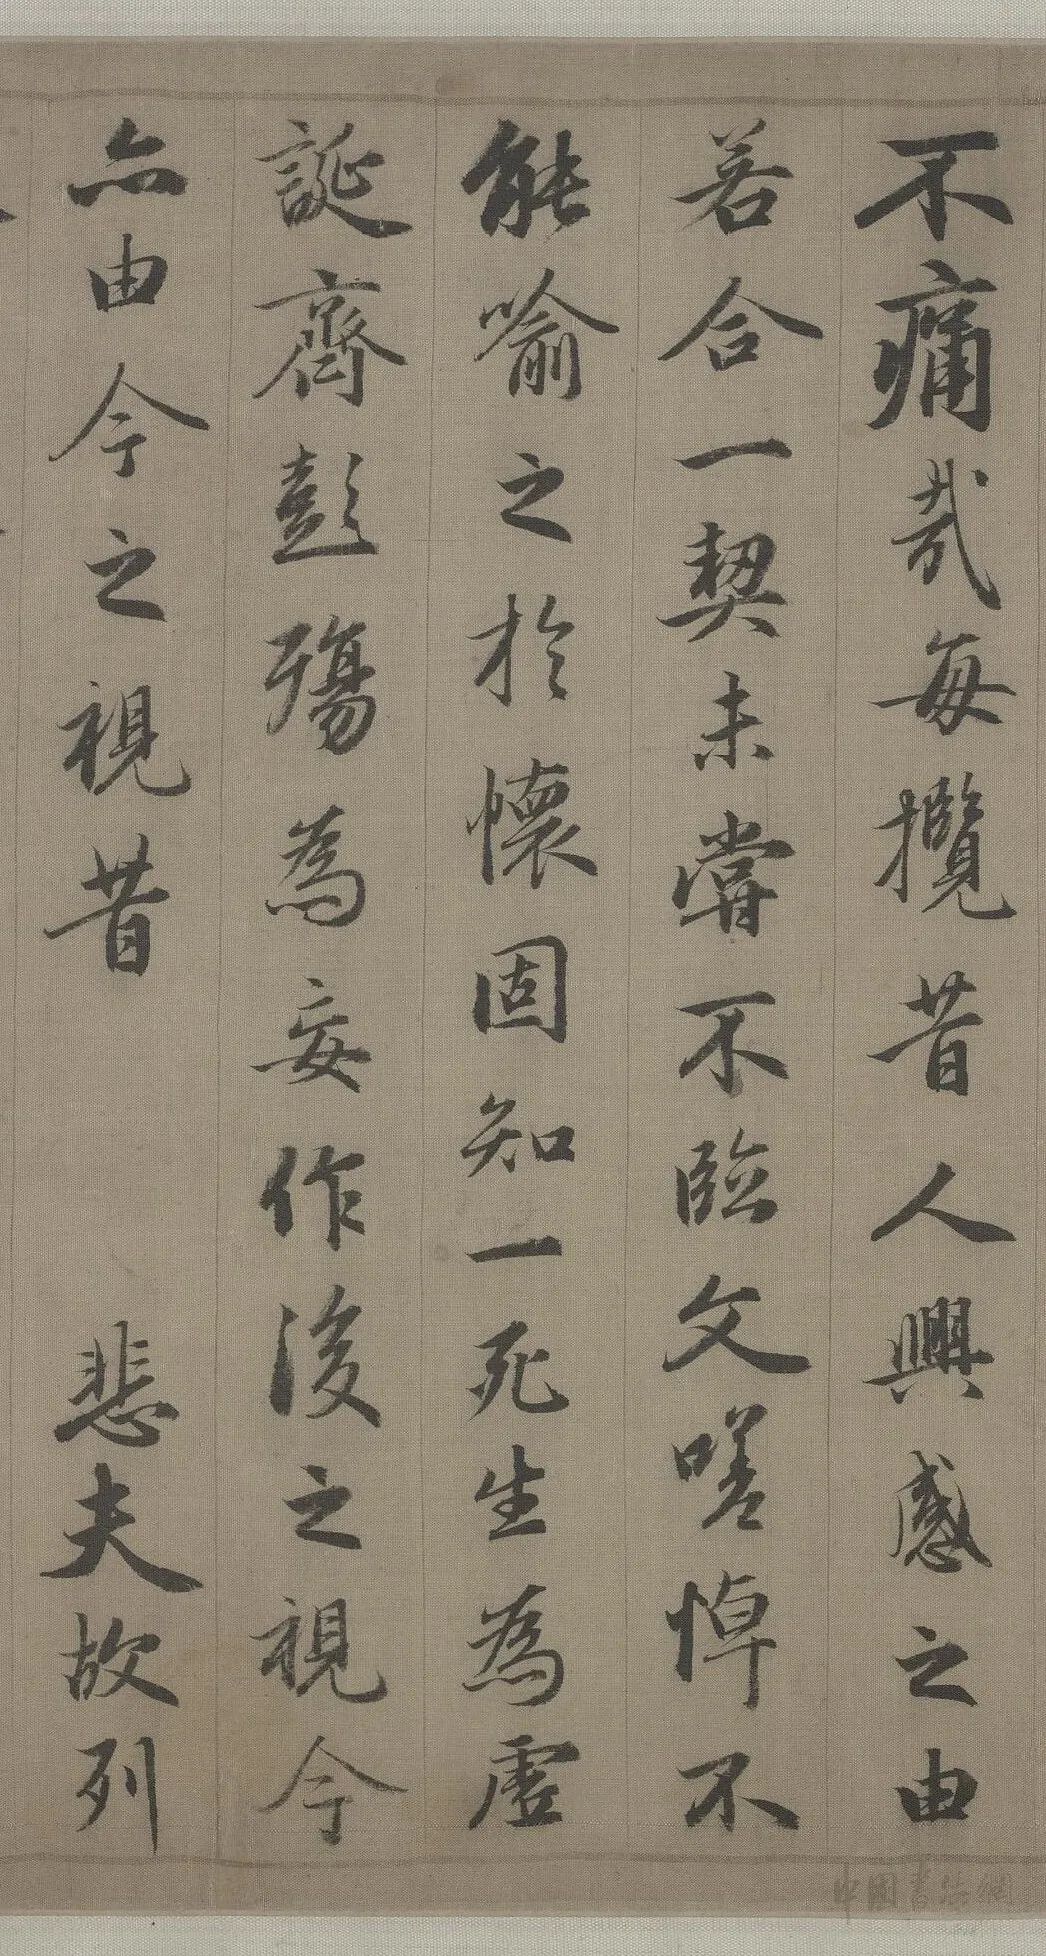 不痛哉每攬昔人興感之由
若合一契未嘗不臨文嗟悼不
能喻之於懷固知一死生為虛
誕齊彭殤為妄作後之視今
亦由今之視昔 悲夫故列
中国书法網